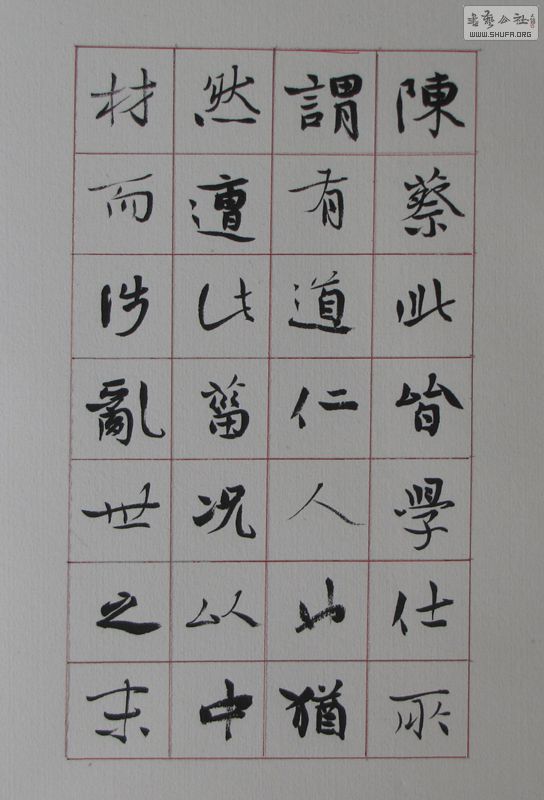 陳蔡此皆學仕所
謂有道仁人也猶
然遭此菑况以中
材而涉亂世之末
書藝公社
WWW.SHUFA.ORG